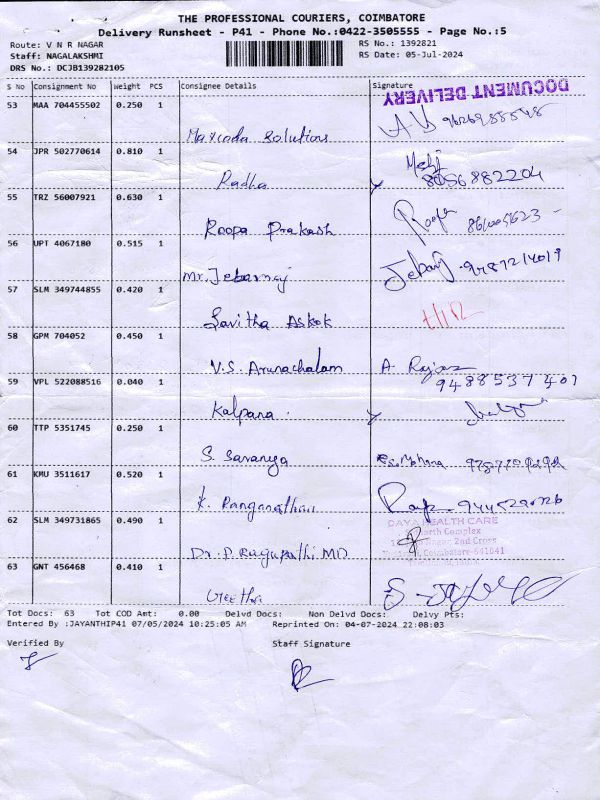 THE PROFESSIONAL COURIERS, COIMBATORE
Delivery Runsheet - P41 - Phone No.:0422-3505555 - Page No.:5
Route: V N R NAGAR RS No.: 1392821
Staff: NAGALAKSHMI RS Date: 05-Jul-2024
DRS No.: DCJB139282105
S No Consignment No Weight PCS Consignee Details Signature
DOCUMENT DELIVERY
53 MAA 704455502 0.250 1
Maxcoda Solutions
54 JPR 502770614 0.810 1
Radha 8056882204
55 TRZ 56007921 0.630 1
Roopa Prakash Roopa
56 UPT 4067180 0.515 1
Mr. Jebarraj
57 SLM 349744855 0.420 1
Savitha Ashok
58 GPM 704052 0.450 1
V.S. Arunachalam A.
9488537401
59 VPL 522088516 0.040 1
Kalpana
60 TTP 5351745 0.250 1
S. Saranya Mohana
61 KMU 3511617 0.520 1
K. Ranganathan
DAYA HEALTH CARE
62 SLM 349731865 0.490 1
Complex
2nd Cross
Coimbatore-641041
Dr. P. Ragupathi MD
63 GNT 456468 0.410 1
Geetha
Tot Docs: 63 Tot COD Amt: 0.00 Delvd Docs: Non Delvd Docs: Delvy Pts:
Entered By :JAYANTHIP41 07/05/2024 10:25:05 AM Reprinted On: 04-07-2024 22:08:03
Verified By Staff Signature